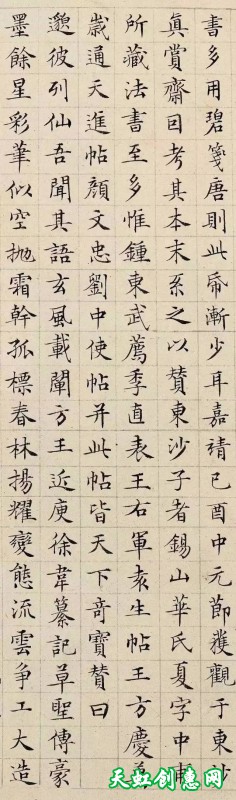 書多用碧箋唐則此帋漸少耳嘉靖己酉中元節獲觀于東沙
真賞齋囙考其本末系之以贊東沙子者錫山華氏夏字中甫
所藏法書至多惟鍾東武薦季直表王右軍袁生帖王方慶
嵗通天進帖顏文忠劉中使帖并此帖皆天下奇寶贊曰
邈彼列仙吾聞其語玄風載闡方王近庾徐韋纂記草聖傳豪
墨餘星彩華似空拋霜幹孤標春林揚耀變態流雲争工大造
天虹创意网